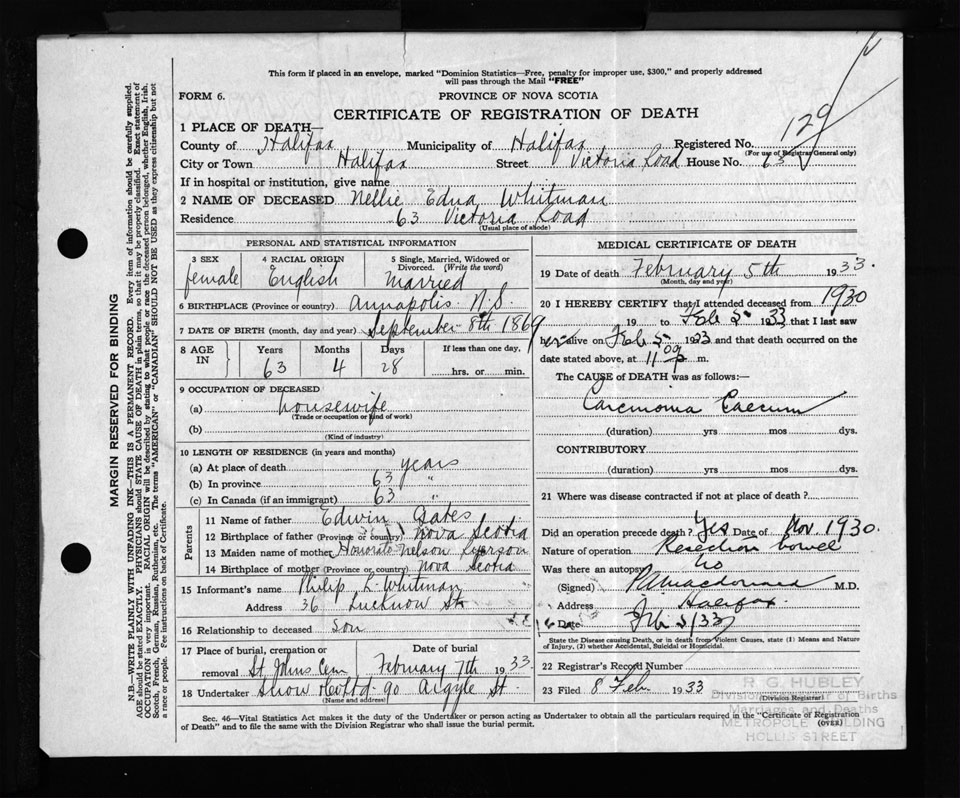 This form if placed in an envelope, marked "Dominion Statistics—Free, penalty for improper use, $300," and properly addressed
will pass through the Mail "FREE"
FORM 6.
PROVINCE OF NOVA SCOTIA
CERTIFICATE OF REGISTRATION OF DEATH
129
1 PLACE OF DEATH—
County of Halifax Municipality of Halifax Registered No.
(For use of Registrar General only)
City or Town Halifax Street Victoria Road House No. 63
If in hospital or institution, give name
2 NAME OF DECEASED Nellie Edna Whitman
Residence 63 Victoria Road
(Usual place of abode)
PERSONAL AND STATISTICAL INFORMATION
3 SEX 4 RACIAL ORIGIN 5 Single, Married, Widowed or
Divorced. (Write the word)
female English Married
6 BIRTHPLACE (Province or country) Annapolis N.S.
7 DATE OF BIRTH (month, day and year) September 8th 1869
8 AGE IN Years Months Days If less than one day,
63 4 28 hrs. or min.
9 OCCUPATION OF DECEASED
(a) housewife
(Trade or occupation or kind of work)
(b)
(Kind of industry)
10 LENGTH OF RESIDENCE (in years and months)
(a) At place of death years
(b) In province 63 "
(c) In Canada (if an immigrant) 63 "
Parents
11 Name of father Edwin Gates
12 Birthplace of father (Province or country) Nova Scotia
13 Maiden name of mother Nelson
14 Birthplace of mother (Province or country) Nova Scotia
15 Informant's name Philip L. Whitman
Address 36 Lucknow St.
16 Relationship to deceased son
17 Place of burial, cremation or Date of burial
removal St. Johns Cem February 7th 1933.
18 Undertaker Snow 90 Argyle St.
(Name and address)
MEDICAL CERTIFICATE OF DEATH
19 Date of death February 5th 1933.
(Month, day and year)
20 I HEREBY CERTIFY that I attended deceased from 1930
19 to Feb 5 1933 that I last saw
her alive on Feb 5 1933 and that death occurred on the
date stated above, at 11 00 p m.
The CAUSE OF DEATH was as follows:—
Carcinoma Caecum
(duration) yrs mos dys.
CONTRIBUTORY
(duration) yrs mos dys.
21 Where was disease contracted if not at place of death?
Did an operation precede death? Yes Date of Nov. 1930.
Nature of operation Resection bowel
Was there an autopsy no
(Signed) M.D.
Address Halifax.
Date Feb 5/33
State the Disease causing Death, or in death from Violent Causes, state (1) Means and Nature
of Injury, (2) whether Accidental, Suicidal or Homicidal.
22 Registrar's Record Number
23 Filed 8 Feb 1933
(Division Registrar)
R G HUBLEY
Division Registrar of Births
Marriages and Deaths
METROPOLE BUILDING
HOLLIS STREET
Sec. 46—Vital Statistics Act makes it the duty of the Undertaker or person acting as Undertaker to obtain all the particulars required in the "Certificate of Registration
of Death" and to file the same with the Division Registrar who shall issue the burial permit.
(OVER)
MARGIN RESERVED FOR BINDING
N.B.—WRITE PLAINLY WITH UNFADING INK—THIS IS A PERMANENT RECORD. Every item of information should be carefully supplied.
AGE should be stated EXACTLY. PHYSICIANS should STATE CAUSE OF DEATH in plain terms, so that it may be properly classified. Exact statement of
OCCUPATION is very important. RACIAL ORIGIN will be described by stating to what people or race the deceased person belonged, whether English, Irish,
Scotch, French, German, Russian, Ruthenian, etc. The terms "AMERICAN" or "CANADIAN" SHOULD NOT BE USED as they express citizenship but not
a race or people. Fee instructions on back of Certificate.